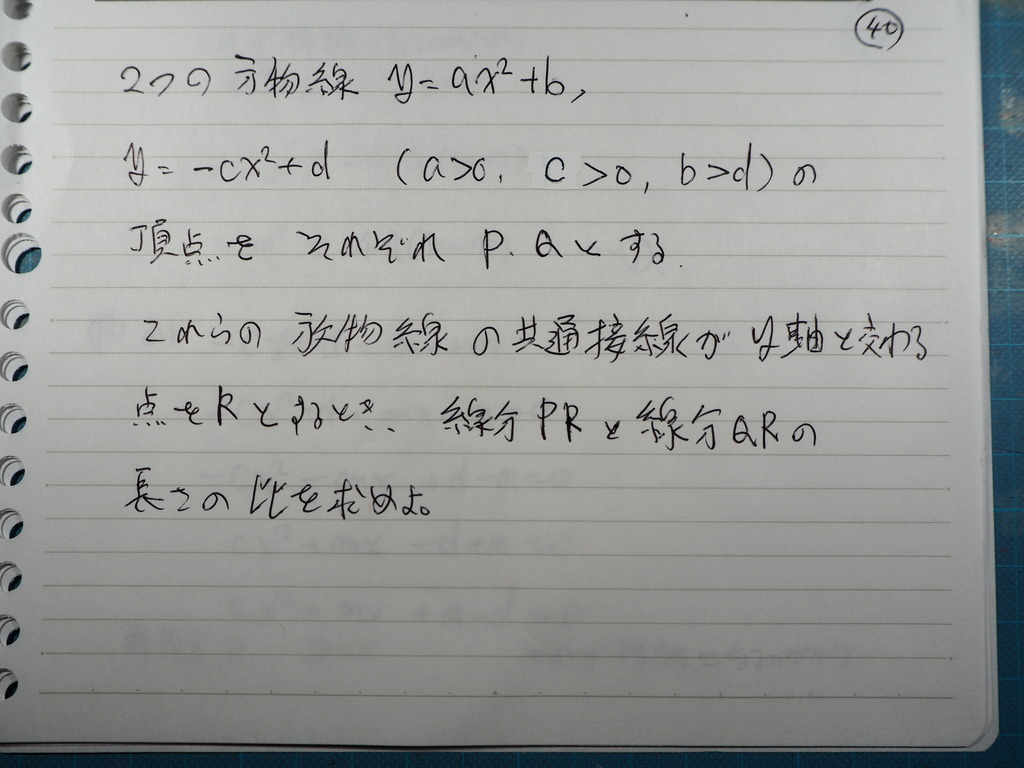 40
2つの放物線 y=ax²+b,
y=-cx²+d (a>0, c>0, b>d)の
頂点をそれぞれP.Qとする.
これらの放物線の共通接線がy軸と交わる
点をRとするとき、線分PRと線分QRの
長さの比を求めよ。